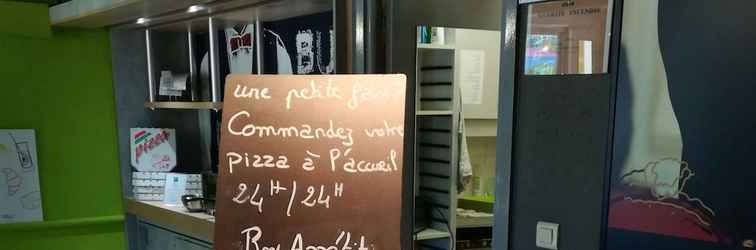 BU
une petite faim?
Commandez votre
pizza à l'accueil
24H/24H
Bon Appétit
Pizza